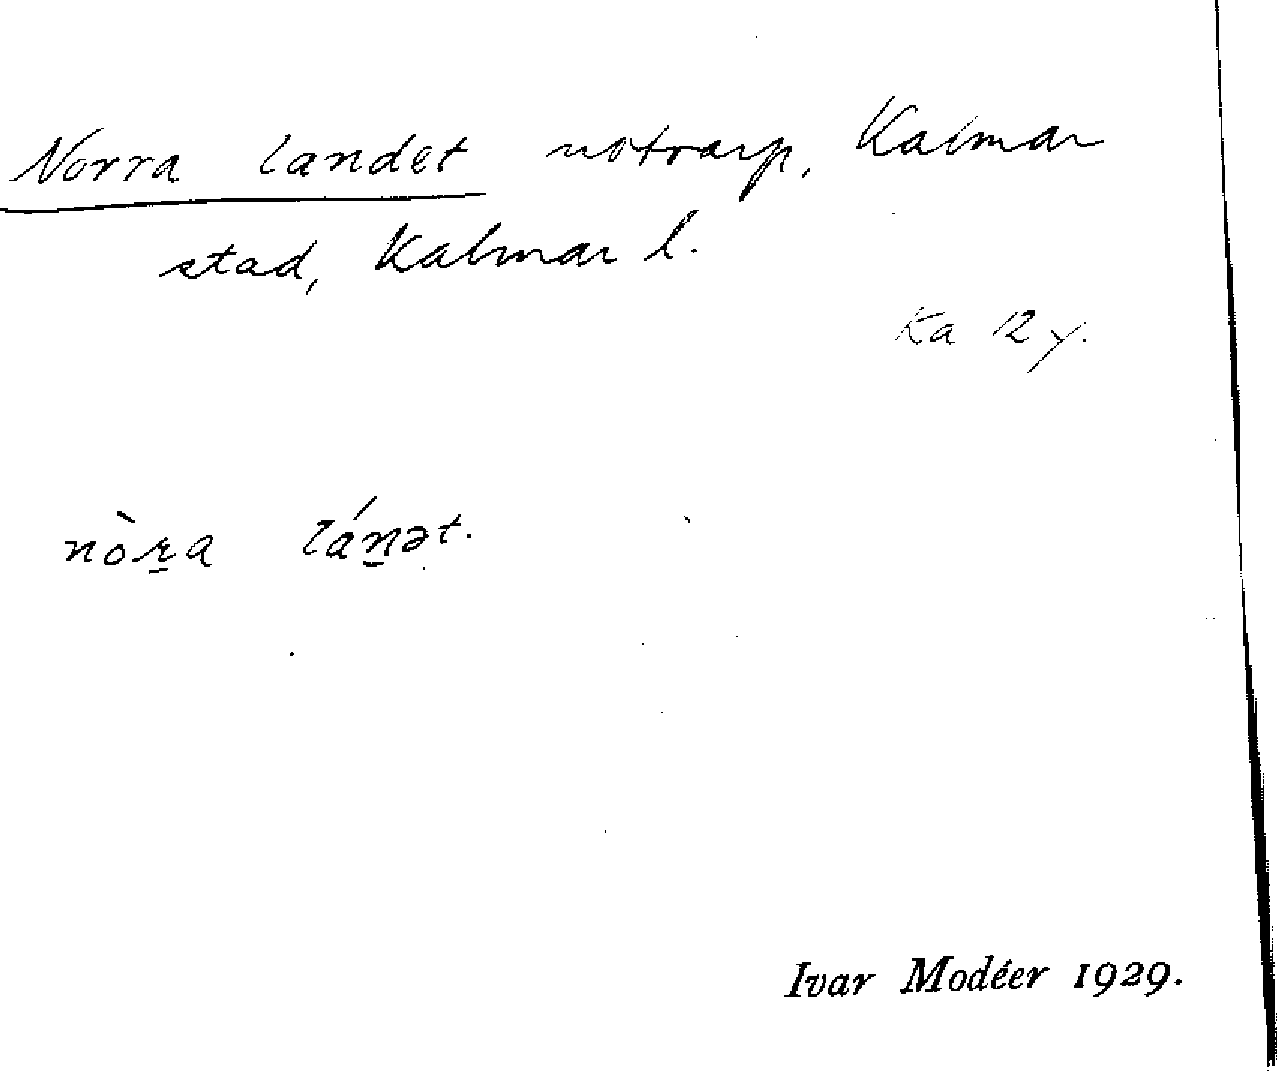 Norra landet notvarp, Kalmar
stad, Kalmar l.
Ka 12 y.
nòr̲a lán̲ət.
Ivar Modéer 1929.